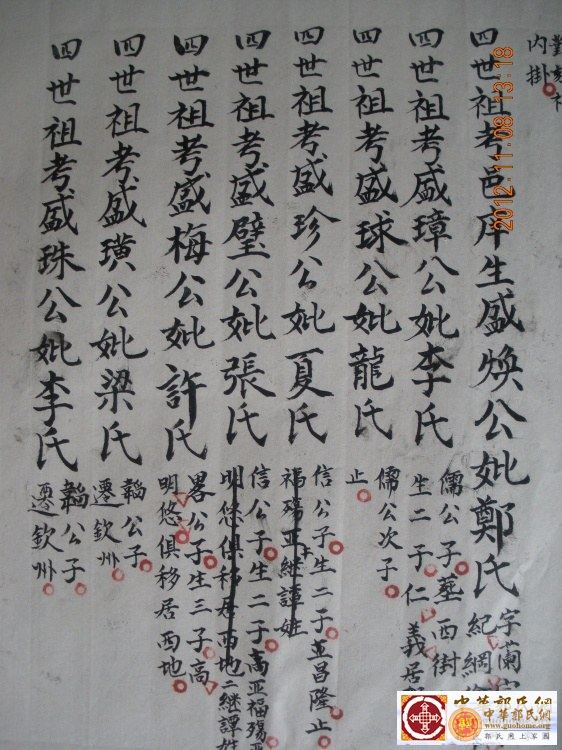 對
内掛
四世祖考邑庠生盛煥公妣鄭氏
字蘭
紀綱
四世祖考盛璋公妣李氏
儒公子墓西街
生二子仁義居
四世祖考盛球公妣龍氏
儒公次子
止
四世祖考盛珍公妣夏氏
信公子生二子並昌隆止
福殤亚継譚姓
四世祖考盛璧公妣張氏
信公子生二子高亚福殤
明悠俱移居西地二継譚姓
四世祖考盛梅公妣許氏
畧公子生三子高
明悠俱移居西地
四世祖考盛璜公妣梁氏
韜公子
遷欽州
四世祖考盛珠公妣李氏
韜公子
遷欽州
2012.11.08 13:18
中華郭氏網
中華郭氏網
www.guohome.org
郭氏网上家園